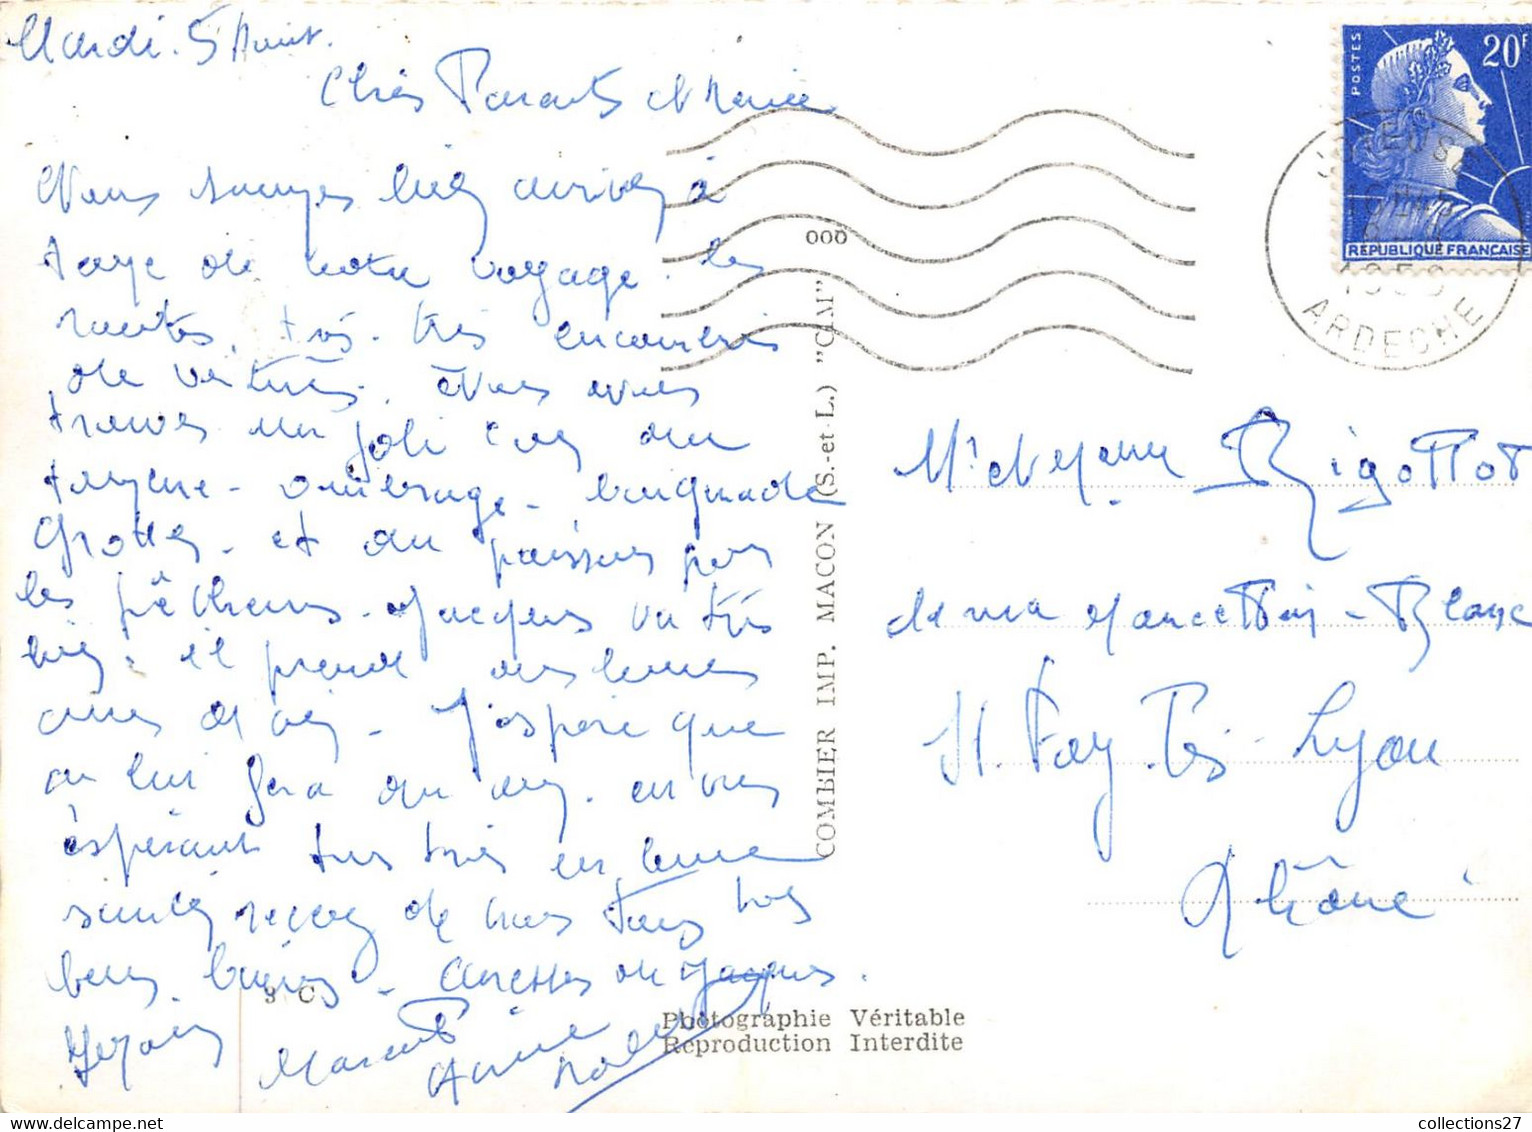 Mardi. 5 Août.
Chers Parents et Mémée
Nous sommes bien arrivés à
terme de notre voyage. les
routes, très. très encombrées
de voitures. Nous avons
trouvés un joli coin au
ombrage - baignade
Grottes - et du poissons pour
les pêcheurs - Jacques va très
bien. il prend des bonnes
J'espère que
ça lui fera du bien. en vous
espérant tous très en bonne
santé recevez de nous tous nos
bons baisers - Caresses de Jacques.
Marcel
POSTES
20F
REPUBLIQUE FRANÇAISE
ARDECHE
000
COMBIER IMP. MACON (S.-et-L.) "CIM"
Mr et Mme Rigottot
St. Foy. Lès - Lyon
Rhône
3 C
Photographie Véritable
Reproduction Interdite
collections27